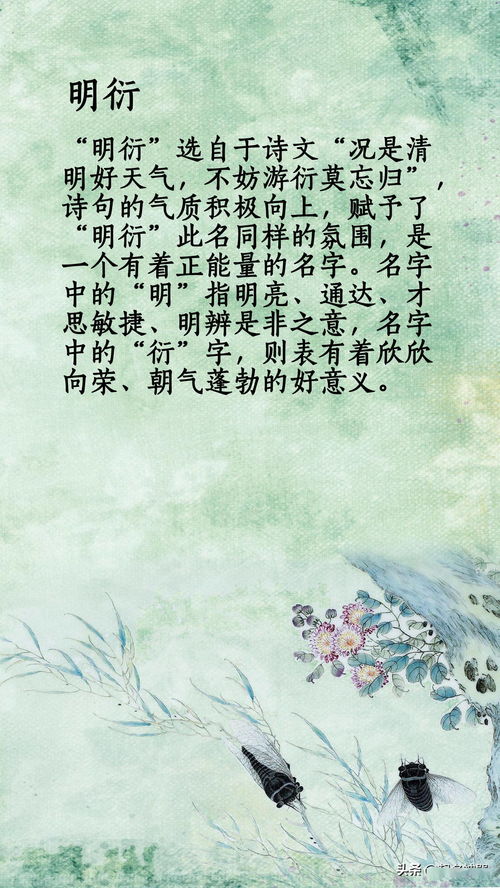 明衍
“明衍”选自于诗文“况是清
明好天气，不妨游衍莫忘归”，
诗句的气质积极向上，赋予了
“明衍”此名同样的氛围，是
一个有着正能量的名字。名字
中的“明”指明亮、通达、才
思敏捷、明辨是非之意，名字
中的“衍”字，则表有着欣欣
向荣、朝气蓬勃的好意义。
头条